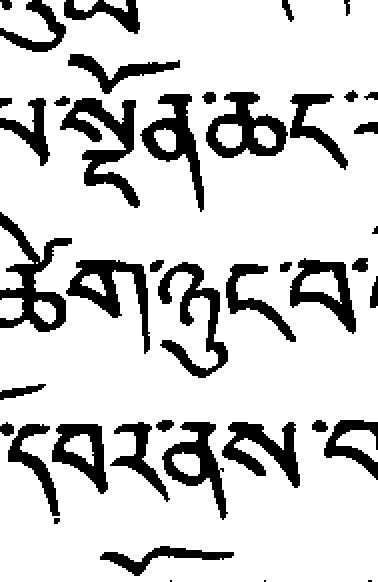 པ་སྔོན་ཆང་
ཚིག་ཉུང་བ་
་དབར་ནས་བ